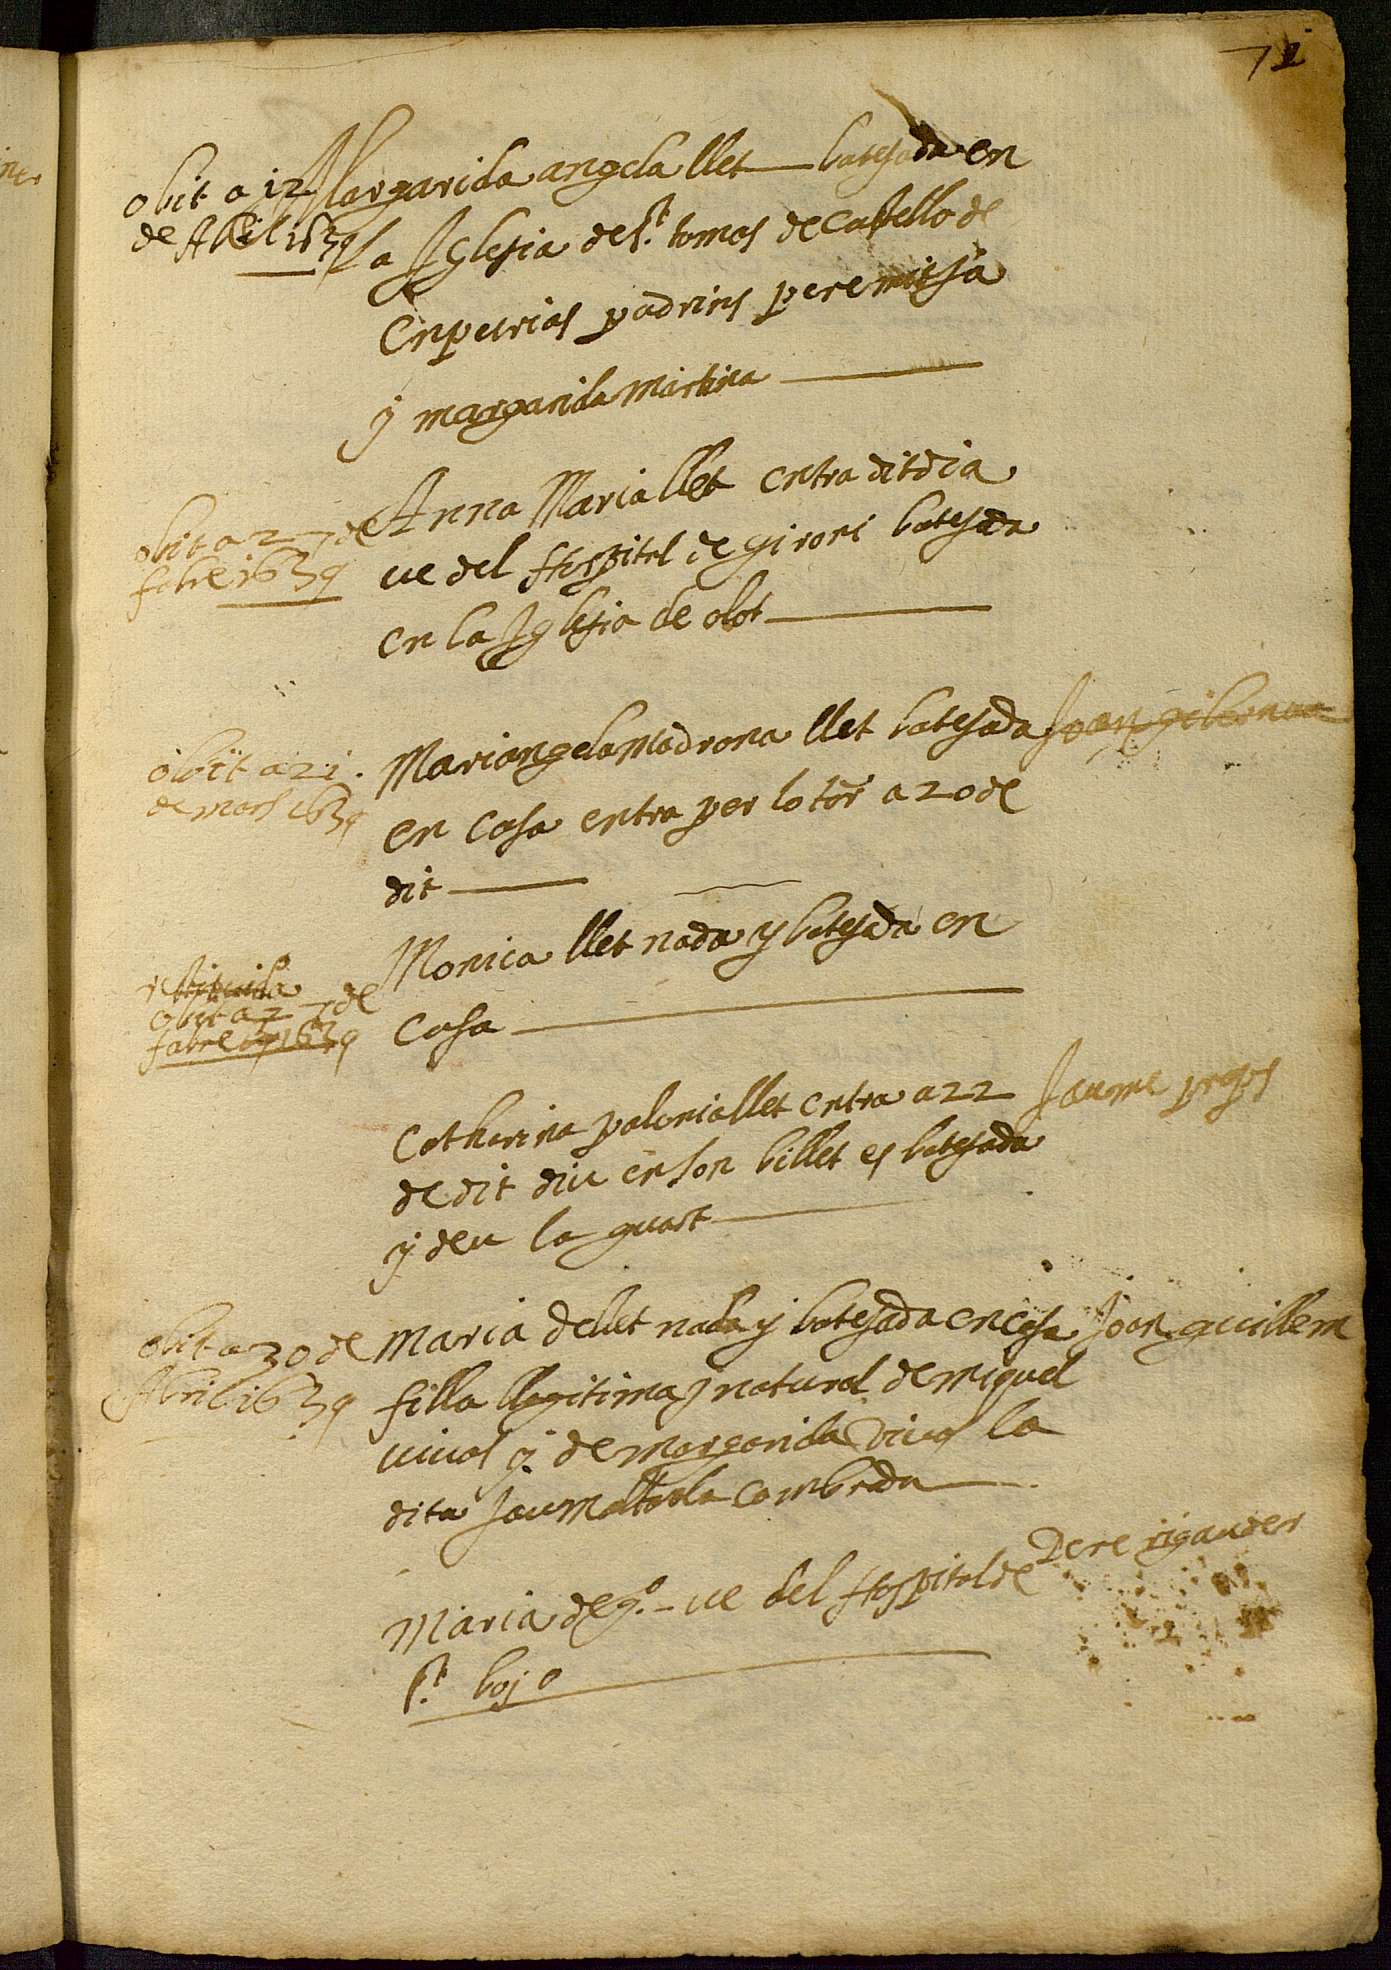 71
obit a 12
de Abril 1639
Margarida angela llet batejada en
la Iglesia de st. tomas de Castello de
Enpurias padrins pere mitja
y margarida Martina
obit a 27 de
febre 1639
Anna Maria llet entra dit dia
ve del Hospital de girori batejada
en la Iglesia de olot
obit a 21
de mars 1639
Mariangela Madrona llet batejada Joan
en casa entra per lo tor a 20 de
dit
restituida
obit a 27 de
fabre 1639
Monica llet nada y batejada en
casa
Catherina palonia llet entra a 22 Jaume
de dit diu en son billet es batejada
y deu la guart
obit a 30 de
Abril 1639
Maria de llet nada y batejada en casa Joan guillem
filla llegitima y natural de miquel
vivas y de margarida vivas la
dita
Maria de go. ve del Hospital de Pere rigauder
st. boj